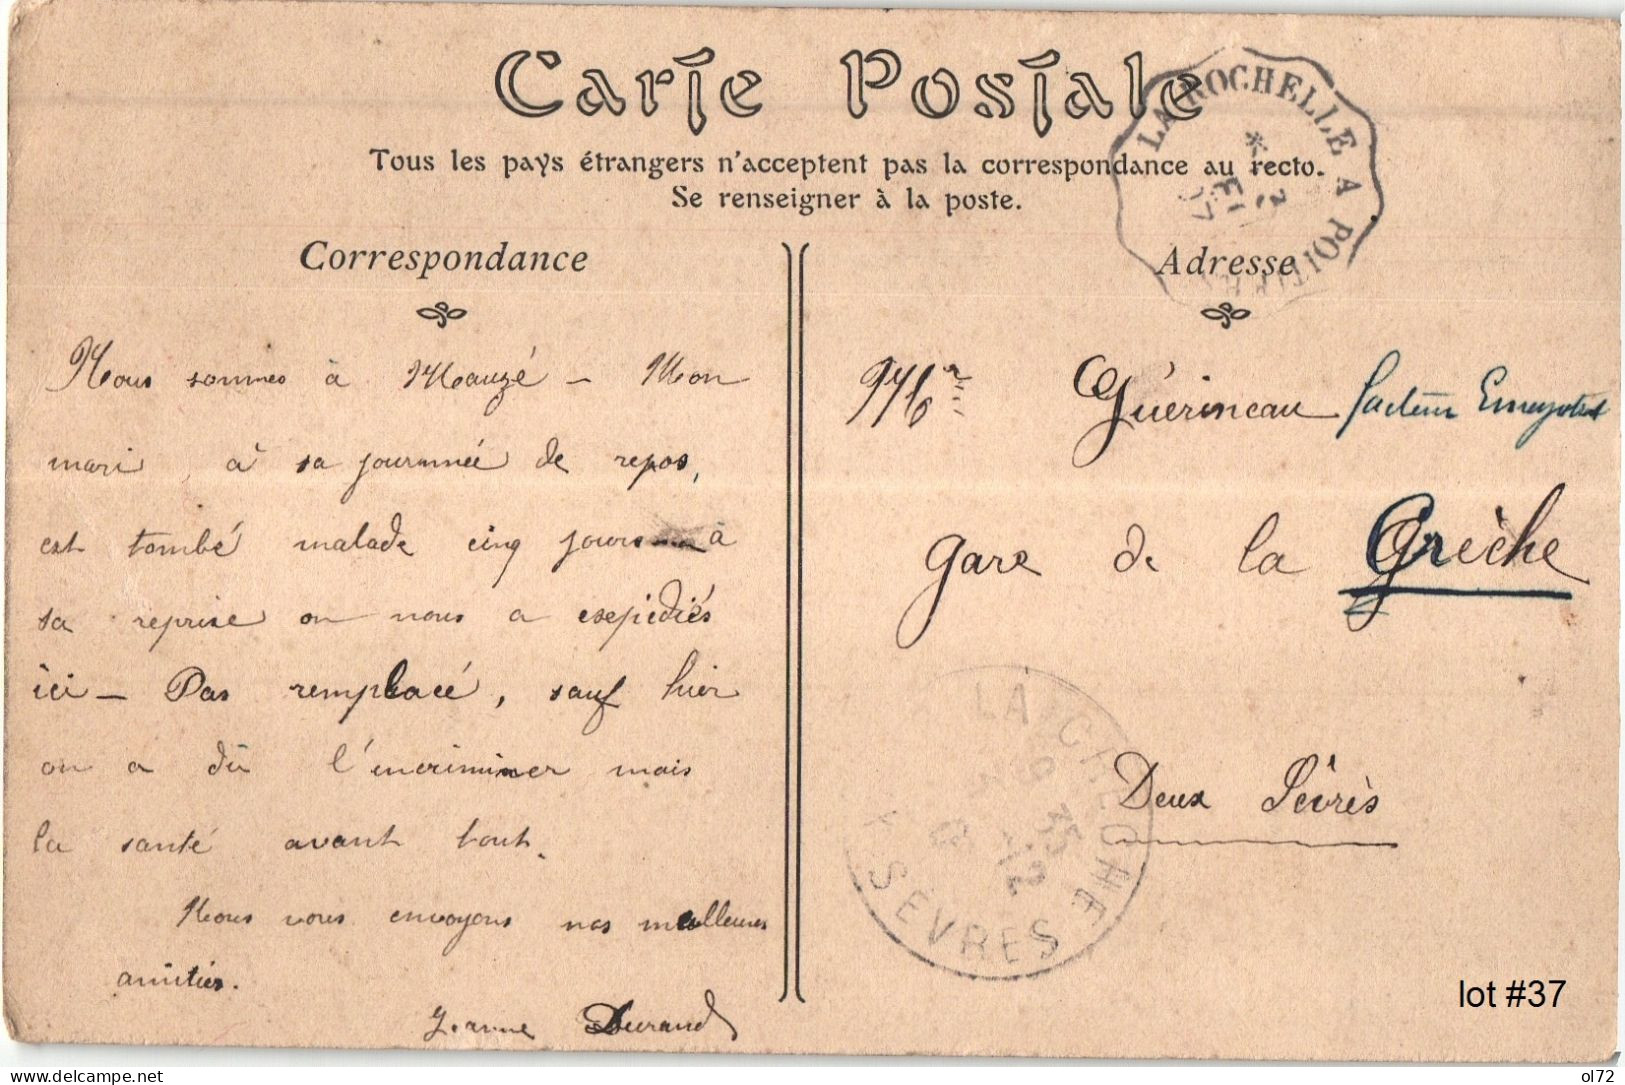 Carte Postale
Tous les pays étrangers n'acceptent pas la correspondance au recto.
Se renseigner à la poste.
LA ROCHELLE A POITIERS
Correspondance
Nous sommes à Mauzé – Mon
mari à sa journnée de repos,
est tombé malade cinq jours à
sa reprise on nous a expédiés
ici – Pas remplacé, sauf hier
on a dû l'incriminer mais
la santé avant tout.
Nous vous envoyons nos meilleures
amitiés.
Jeanne Durand
Adresse
Mr Guérineau facteur
gare de la Crèche
Deux Sèvres
LA CRECHE
SEVRES
lot #37
ol72